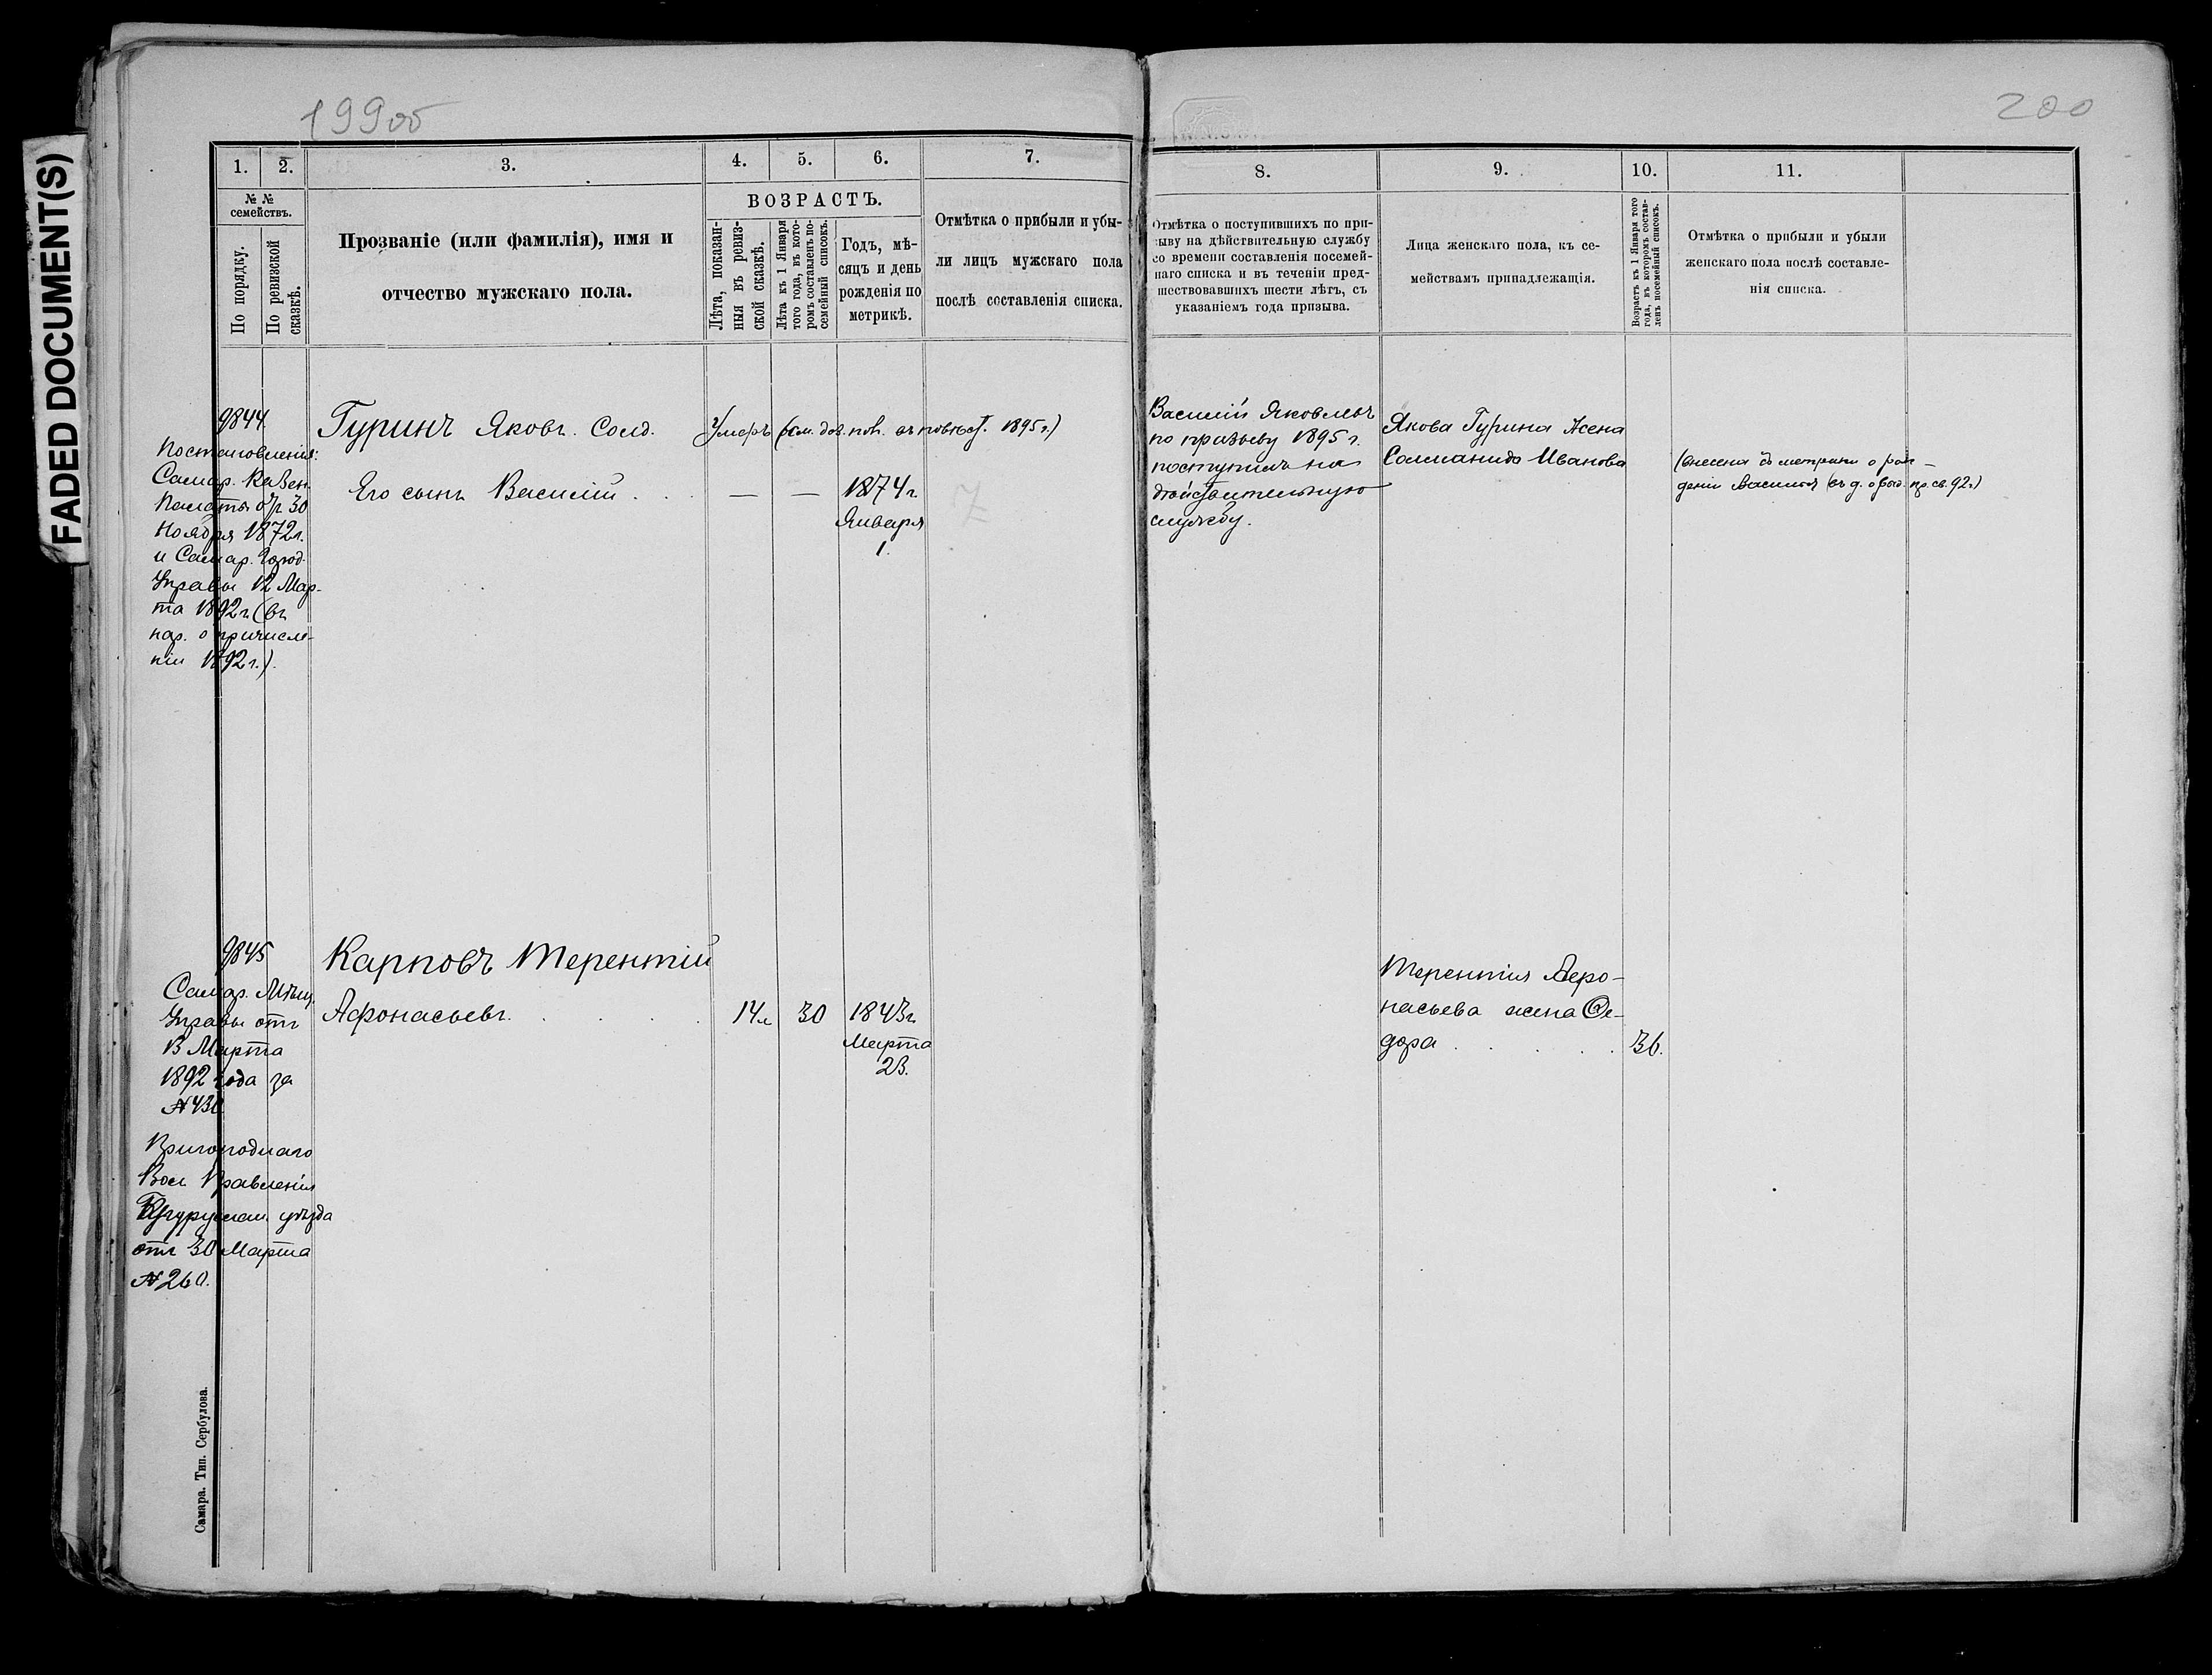 FADED DOCUMENT(S)
199об
200
1.
2.
3.
4.
5.
6.
7.
8.
9.
10.
11.
№ №
семействъ.
По порядку.
По ревизской
сказкѣ.
Прозваніе (или фамилія), имя и
отчество мужскаго пола.
ВОЗРАСТЪ.
Лѣта, показан-
ныя въ ревиз-
ской сказкѣ.
Лѣта къ 1 Января
того года, въ кото-
ромъ составленъ по-
семейный списокъ.
Годъ, мѣ-
сяцъ и день
рожденія по
метрикѣ.
Отмѣтка о прибыли и убы-
ли лицъ мужскаго пола
послѣ составленія списка.
Отмѣтка о поступившихъ по при-
зыву на дѣйствительную службу
со времени составленія посемей-
наго списка и въ теченіи пред-
шествовавшихъ шести лѣтъ, съ
указаніемъ года призыва.
Лица женскаго пола, къ се-
мействамъ принадлежащія.
Возрастъ къ 1 Января того
года, въ которомъ состав-
ленъ посемейный списокъ.
Отмѣтка о прибыли и убыли
женскаго пола послѣ составле-
нія списка.
9844
Постановленія:
Самар. Казен.
Палаты отъ 30
Ноября 1872 г.
и Самар. Город.
Управы 12 Мар-
та 1892 г. (въ
нар. о причисле-
ніи 1892 г.).
Гуринъ Яковъ. Солд.
Умеръ (см. пов. 1895 г.)
Его сынъ Василій . .
— — 1874 г.
Января
1.
Василій Яковлевъ
по призыву 1895 г.
поступилъ на
дѣйствительную
службу.
Якова Гурина жена
Соломанида Иванова
(внесена метрики о рож-
деніи Василія 92 г)
9845
Самар. Мѣщ.
Управы отъ
13 Марта
1892 года за
№430
Пригороднаго
Вол. Правленія
Бугуруслан. уѣзда
отъ 30 Марта
№260.
Карповъ Терентій
Афонасьевъ. . . .
14 л 30 1843 г.
Марта
23.
Терентія Афо-
насьева жена Ѳе-
дора . . . . . 36.
Самара. Тип. Сербулова.